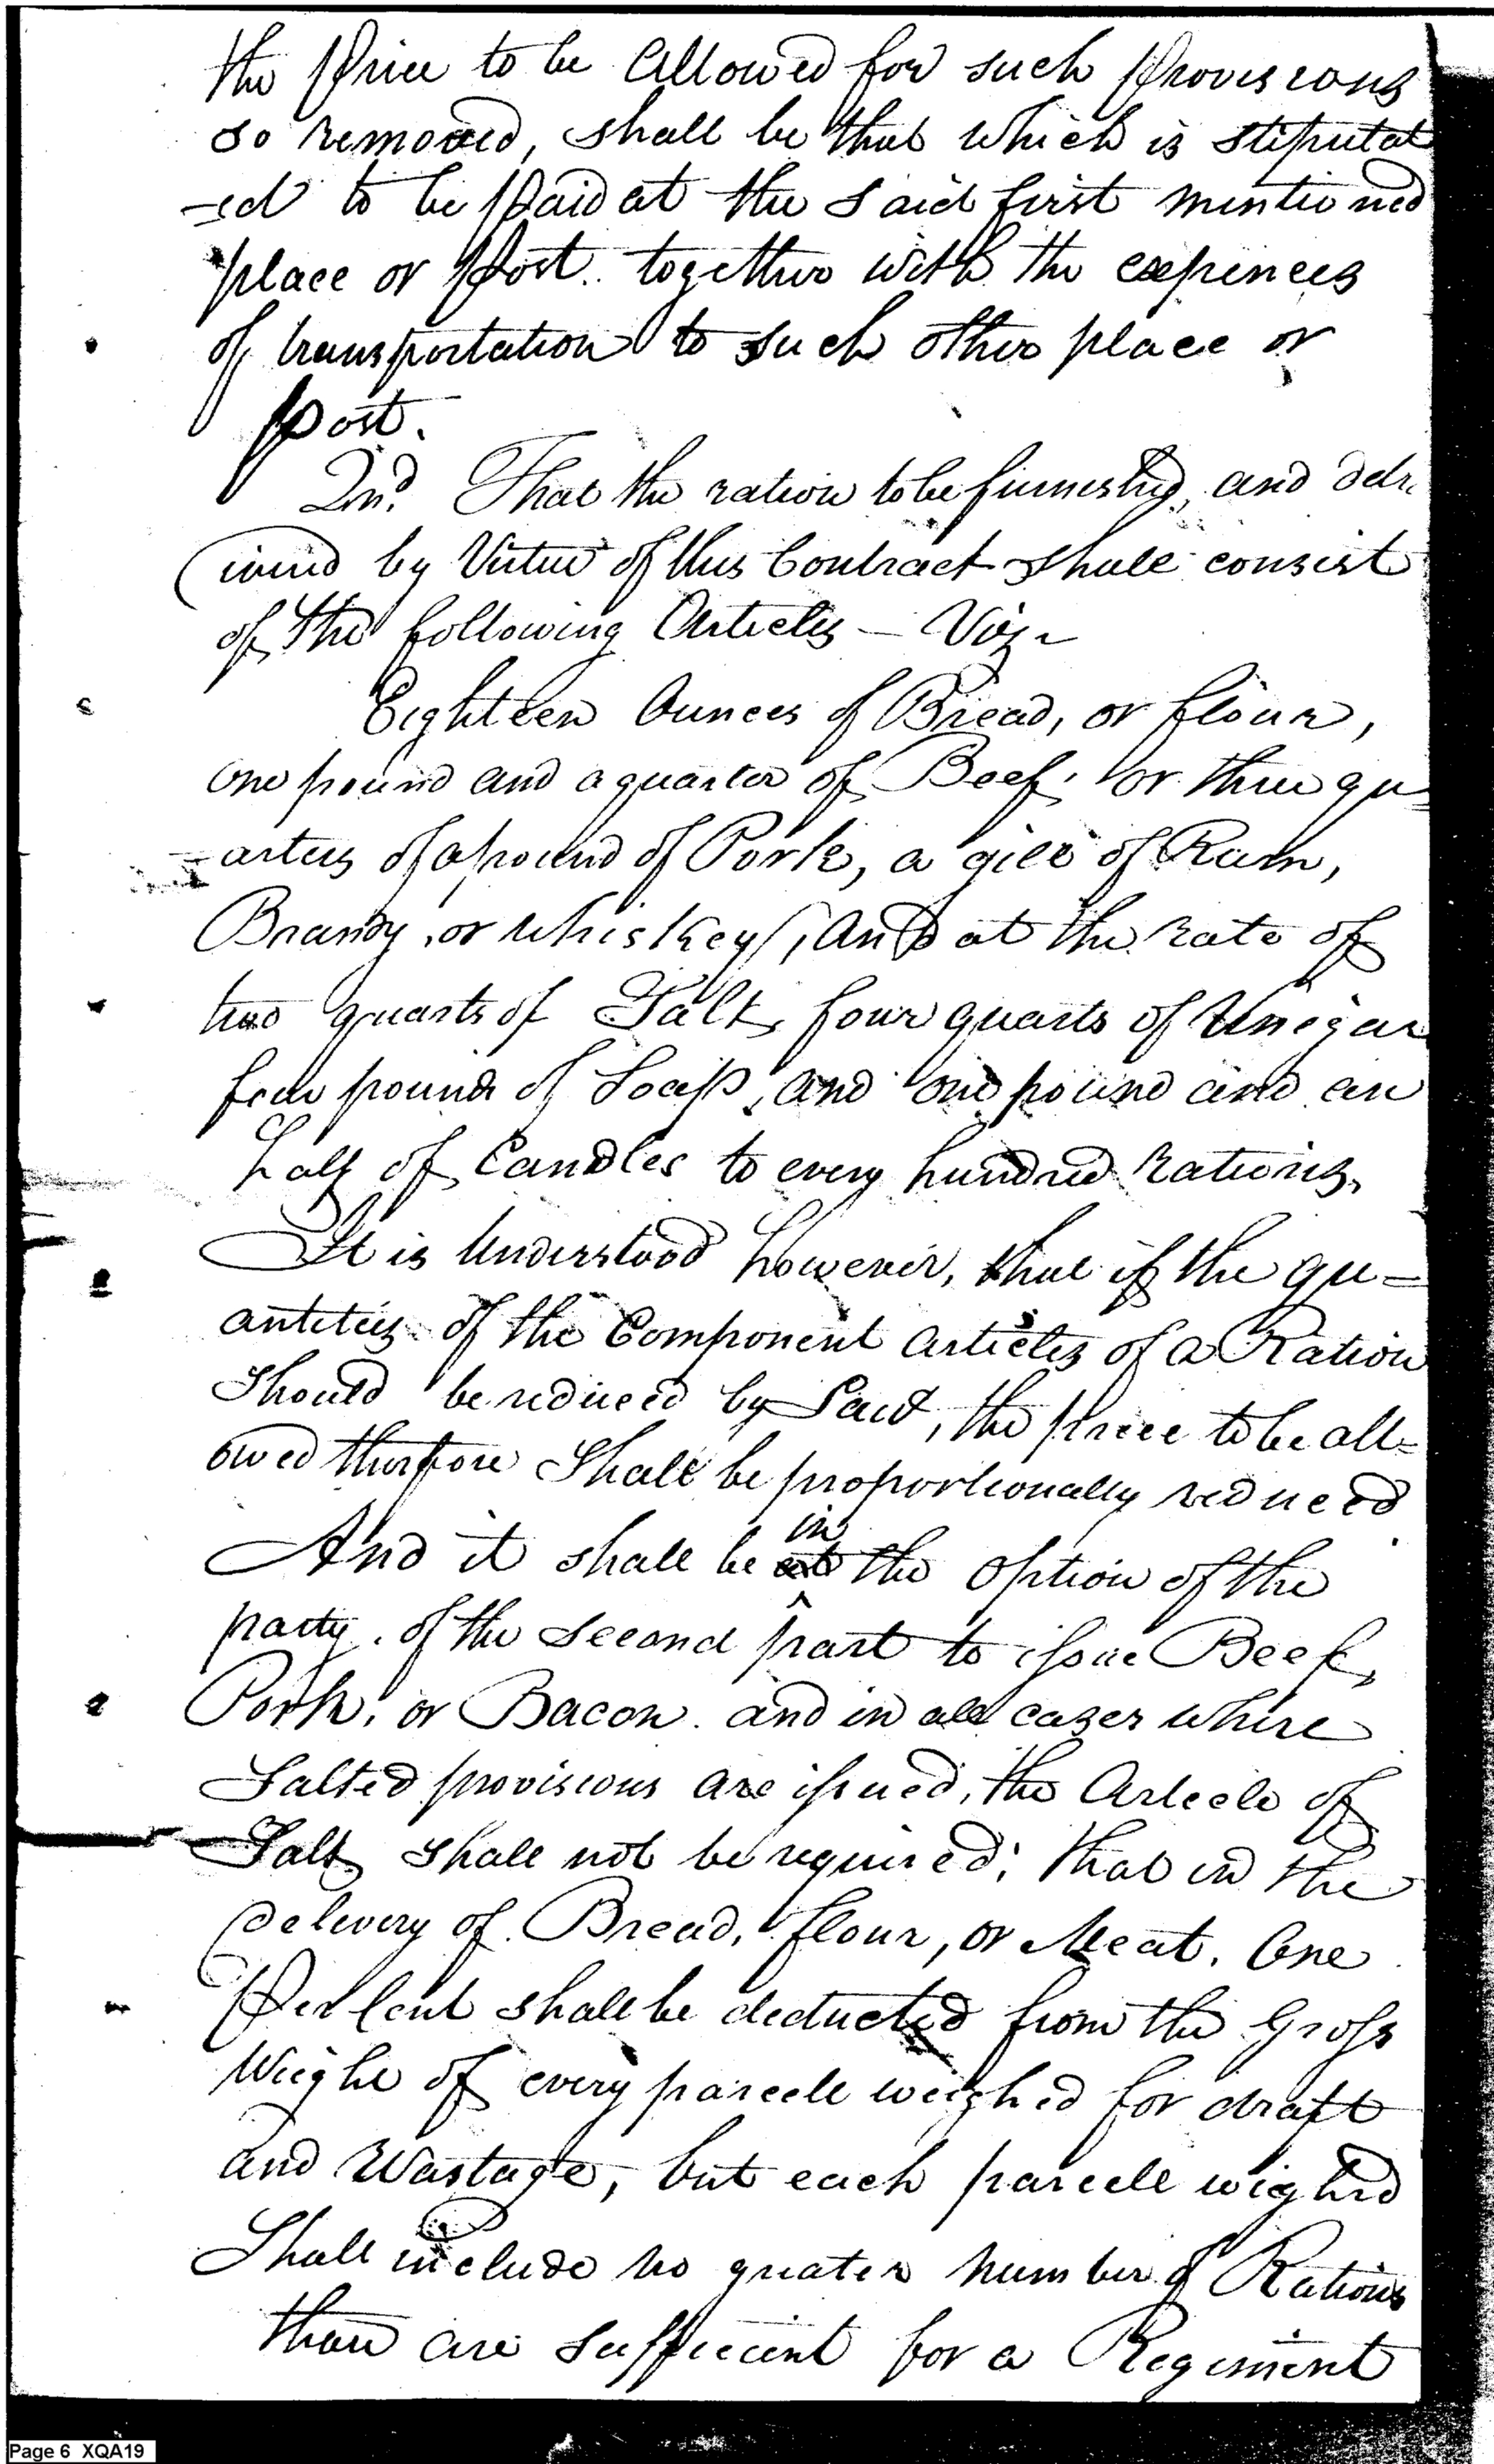 the Price to be Allowed for such Provisions
so removed, shall be that which is stipulat
-ed to be Paid at the said first mentioned
place or Post. together with the expences
of transportation to such other place or
Post.
2nd. That the ration to be furnished, and deli
ivered by Virtue of this Contract shall consist
of the following Articles — Viz.
Eighteen Ounces of Bread, or flour,
one pound and a quarter of Beef, or three qu
-arters of a pound of Pork, a gill of Rum,
Brandy, or whiskey, And at the rate of
two quarts of Salt, four quarts of Vinegar
four pounds of Soap, and one pound and an
half of Candles to every hundred Rations.
It is Understood however, that if the qu=
antities of the Component articles of a Ration
Should be reduced by Law, the price to be all=
owed therefore Shall be proportionally reduced
in
And it shall be at the option of the
party. of the second part to issue Beef,
Pork, or Bacon. and in all cases where
Salted provisions are issued, the Article of
Salt shall not be required; that in the
delivery of Bread, flour, or Meat. One
Per Cent shall be deducted from the Gross
Weight of every parcell weighed for draft
and Wastage, but each parcell weighed
Shall include no greater number of Rations
than are sufficient for a Regiment
Page 6 XQA19